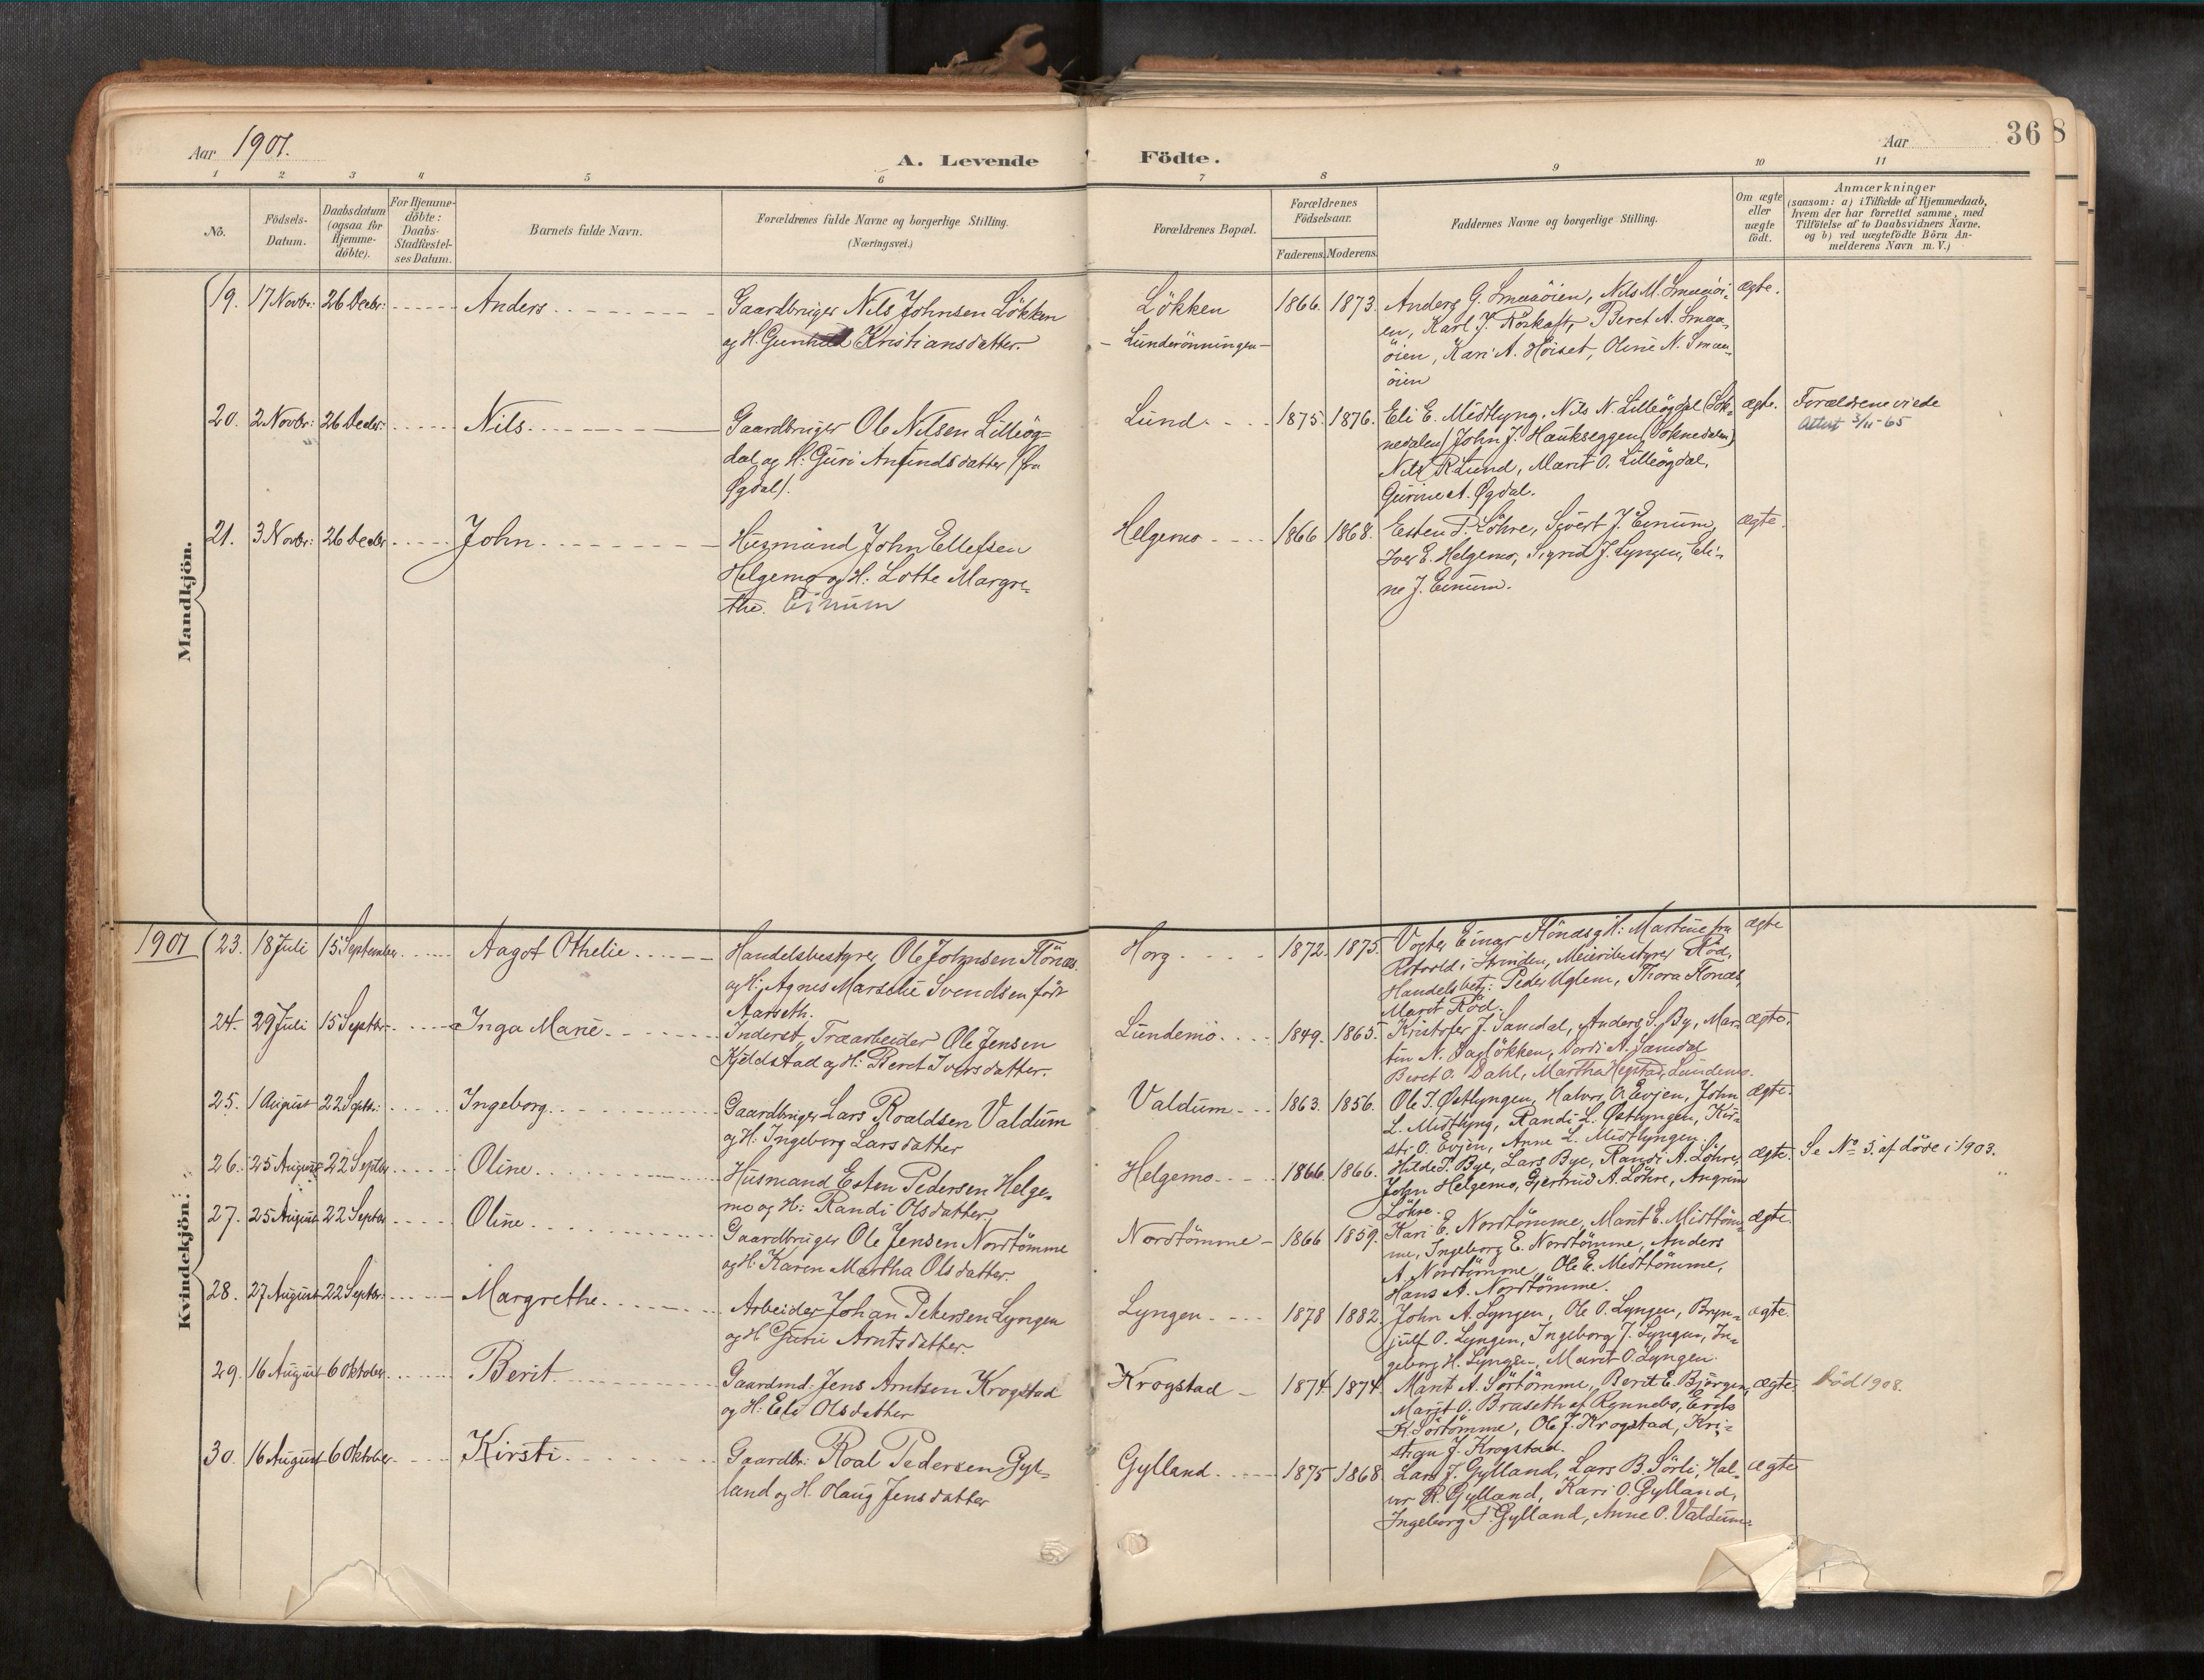 Aar 1901.
A. Levende Födte.
Aar
36
8
1 2 3 4 5 6 7 8 9 10 11
No.
Födsels-
Datum.
Daabsdatum
(ogsaa for
Hjemme-
döbte).
For Hjemme-
döbte:
Daabs-
Stadfæstel-
ses Datum.
Barnets fulde Navn.
Forældrenes fulde Navne og borgerlige Stilling.
(Næringsvei.)
Forældrenes Bopæl.
Forældrenes
Födselsaar.
Faderens. Moderens.
Faddernes Navne og borgerlige Stilling.
Om ægte
eller
uægte
födt.
Anmærkninger
(saasom: a) i Tilfælde af Hjemmedaab,
hvem der har forrettet samme, med
Tilföielse af to Daabsvidners Navne,
og b) ved uægtefödte Börn An-
melderens Navn m. V.)
Mandkjön.
19. 17 Novbr: 26 Decbr: Anders
Gaardbruger Nils Johnsen Lökken
og H. Gunhild Kristiansdatter.
Lökken
- Lunderönningen -
1866. 1873.
Anders G. Smaaöien, Nils M. Smaaöi-
en, Karl J. Rörkaft, Beret A. Smaa-
öien, Kari A. Höiset, Oline N. Smaa-
öien
ægte.
20. 2 Novbr: 26 Decbr: Nils
Gaardbruger Ole Nilsen Lilleög-
dal og H: Guri Anfindsdatter (fra
Øgdal).
Lund
1875. 1876.
Eli E. Midtlyng, Nils N. Lilleögdal (Sok-
nedalen) John J. Haukseggen (Soknedalen)
Nils R Lund, Marit O. Lilleögdal,
Gurine A. Øgdal.
ægte.
Forældrene viede
Attest 3/11-65
21. 3 Novbr: 26 Decbr John
Husmand John Ellefsen
Helgemo og H: Lotte Margre-
the. Einum
Helgemo
1866 1868.
Esten P. Löhre, Sivert J. Einum,
Iver E. Helgemo, Sigrid J. Lyngen, Eli-
ne J. Einum.
ægte.
1901
Kvindekjön.
23. 18 Juli 15 September Aagot Othelie
Handelsbestyrer Ole Johnsen Flönæs
og H: Agnes Marselie Svendsen født
Aarseth.
Horg
1872. 1875.
Vogter Einar Flönæs og H: Martine fra
Rotvold i Strinden, Meieribestyrer Röd,
Handelsbetj: Peder Uglem, Thora Flönæs,
Marit Röd.
ægte
24. 29 Juli 15 Septbr. Inga Marie
Inderst, Træarbeider Ole Jensen
Kjeldstad og H: Beret Iversdatter.
Lundemo
1849. 1865.
Kristofer J. Samdal, Anders S. By, Mar-
tin N. Daglökken, Nordi A. Samdal
Beret O. Dahl, Martha Hegstad, Lundemo.
ægte.
25. 1 August 22 Septbr: Ingeborg
Gaardbruger Lars Roaldsen Valdum
og H: Ingeborg Larsdatter
Valdum
1863. 1856.
Ole T. Østlyngen, Halvor A. Evjen, John
L. Midtlyng, Randi L. Østlyngen, Kir-
sti O. Evjen, Anne L. Midtlyngen.
ægte.
26. 25 August 22 Septbr Oline
Husmand Esten Pedersen Helge-
mo og H: Randi Olsdatter
Helgemo
1866. 1866.
Hilde T. Bye, Lars Bye, Randi A. Löhre,
John Helgemo, Gjertrud A. Löhre, Angrim
Löhre.
ægte.
Se No 5. af döde i 1903.
27. 25 August 22 Septbr Oline
Gaardbruger Ole Jensen Nordtömme
og H: Karen Martha Olsdatter.
Nordtömme
1866 1859.
Kari E. Nordtömme, Marit E. Midttöm-
me, Ingeborg E. Nordtömme, Anders
A. Nordtömme, Ole E. Midttömme,
Hans A. Nordtömme.
ægte.
28. 27 August 22 Septbr: Margrethe
Arbeider Johan Petersen Lyngen
og H Gurie Arntsdatter.
Lyngen
1878 1882.
John A. Lyngen, Ole O. Lyngen, Bryn-
julf O. Lyngen, Ingeborg J. Lyngen, In-
geborg H. Lyngen, Marit O. Lyngen.
ægte.
29. 16 August 6 Oktober Berit
Gaardmd. Jens Arntsen Krogstad
og H: Eli Olsdatter
Krogstad
1874 1874.
Marit A. Sörtömme, Berit E. Björgen,
Marit O. Braseth af Rennebo, Erik
K. Sörtömme, Ole J. Krogstad, Kri-
stian J. Krogstad.
ægte.
Död 1908.
30. 16 August 6 Oktober Kirsti
Gaardbr: Roal Pedersen Gyl-
land og H. Olaug Jensdatter
Gylland
1875 1868
Lars J. Gylland, Lars B. Sörli, Hal-
vor R. Gylland, Kari O. Gylland,
Ingeborg P. Gylland, Anne O. Valdum.
ægte